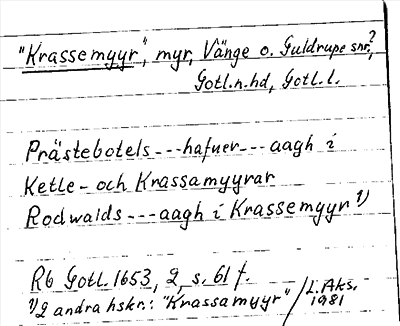 "Krassemyyr", myr, Vänge o. Guldrupe snr,?
Gotl.n.hd, Gotl.l.
Prästebotels---hafuer---aagh i
Ketle- och Krassamyyrar
Rodwalds---aagh i Krassemyyr 1)
Rb Gotl. 1653, 2, s. 61 f.
1) 2 andra hskr.: "Krassamyyr" / L. Aks.
1981